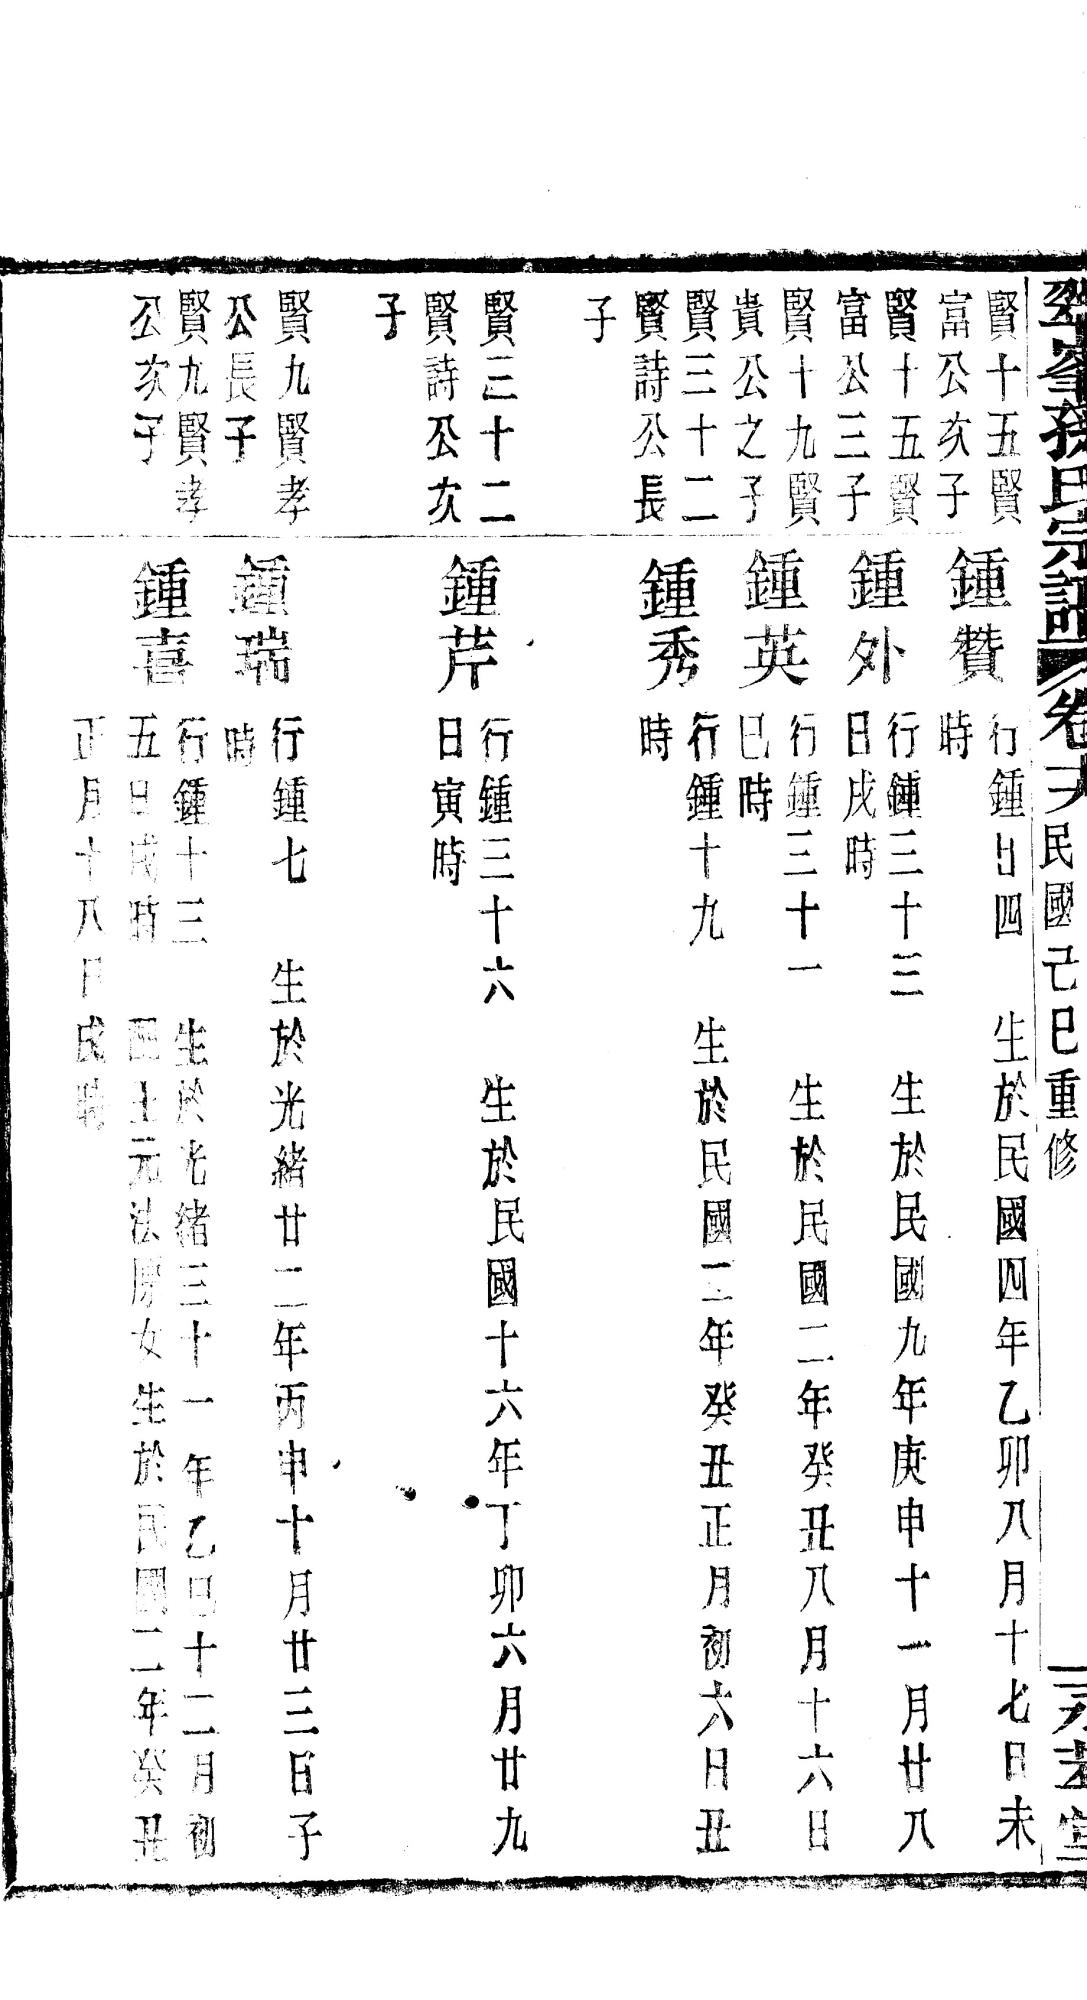 翠峯孫氏宗譜 卷 民國己巳重修
賢十五賢
富公次子
鍾贊
行鍾廿四 生於民國四年乙卯八月十七日未
時
賢十五賢
富公三子
鍾外
行鍾三十三 生於民國九年庚申十一月廿八
日戌時
賢十九賢
貴公之子
鍾英
行鍾三十一 生於民國二年癸丑八月十六日
巳時
賢三十二
賢詩公長
子
鍾秀
行鍾十九 生於民國二年癸丑正月初六日丑
時
賢三十二
賢詩公次
子
鍾芹
行鍾三十六 生於民國十六年丁卯六月廿九
日寅時
賢九賢孝
公長子
鍾瑞
行鍾七 生於光緒廿二年丙申十月廿三日子
時
賢九賢孝
公次子
鍾喜
行鍾十三 生於光緒三十一年乙巳十二月初
五日戌時 配王元法原女生於民國二年癸丑
正月十八日戌時